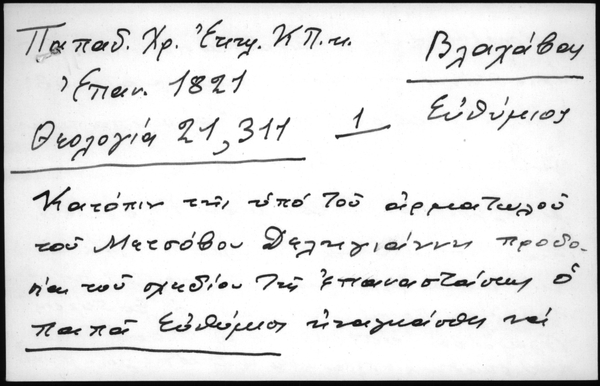 Παπαδ. Χρ. Ἐκκλ. ΚΠ. κ.
Βλαχάβας
Ἐπαν. 1821
Εὐθύμιος
Θεολογία 21, 311
1
Κατόπιν τῆς ὑπό τοῦ ἁρματωλοῦ
τοῦ Μετσόβου Δεληγιάννη προδο-
σίας τοῦ σχεδίου τῆς Ἐπαναστάσεως ὁ
παπᾶ Εὐθύμιος ἠναγκάσθη νά